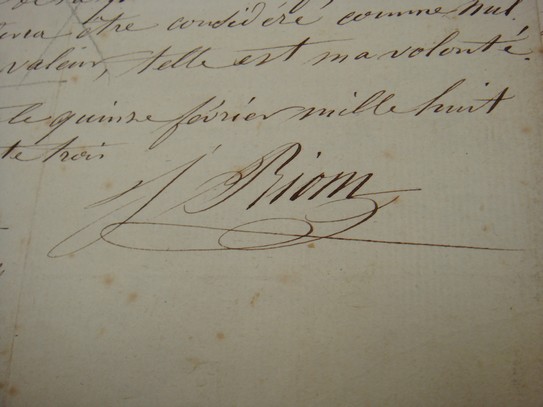 être considéré comme nul.
valeur, telle est ma volonté.
le quinze février mille huit
te trois
J. Riom